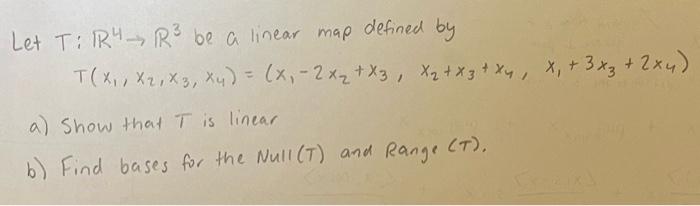 Let T: ℝ⁴ → ℝ³ be a linear map defined by
T(x₁, x₂, x₃, x₄) = (x₁ - 2x₂ + x₃, x₂ + x₃ + x₄, x₁ + 3x₃ + 2x₄)
a) Show that T is linear
b) Find bases for the Null(T) and Range (T).